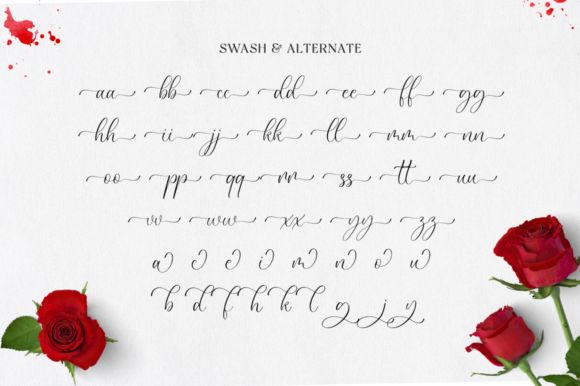 SWASH & ALTERNATE
aa bb cc dd ee ff gg
hh ii jj kk ll mm nn
oo pp qq rr ss tt uu
vv ww xx yy zz
a e i m n o u
b d f h k l g j y